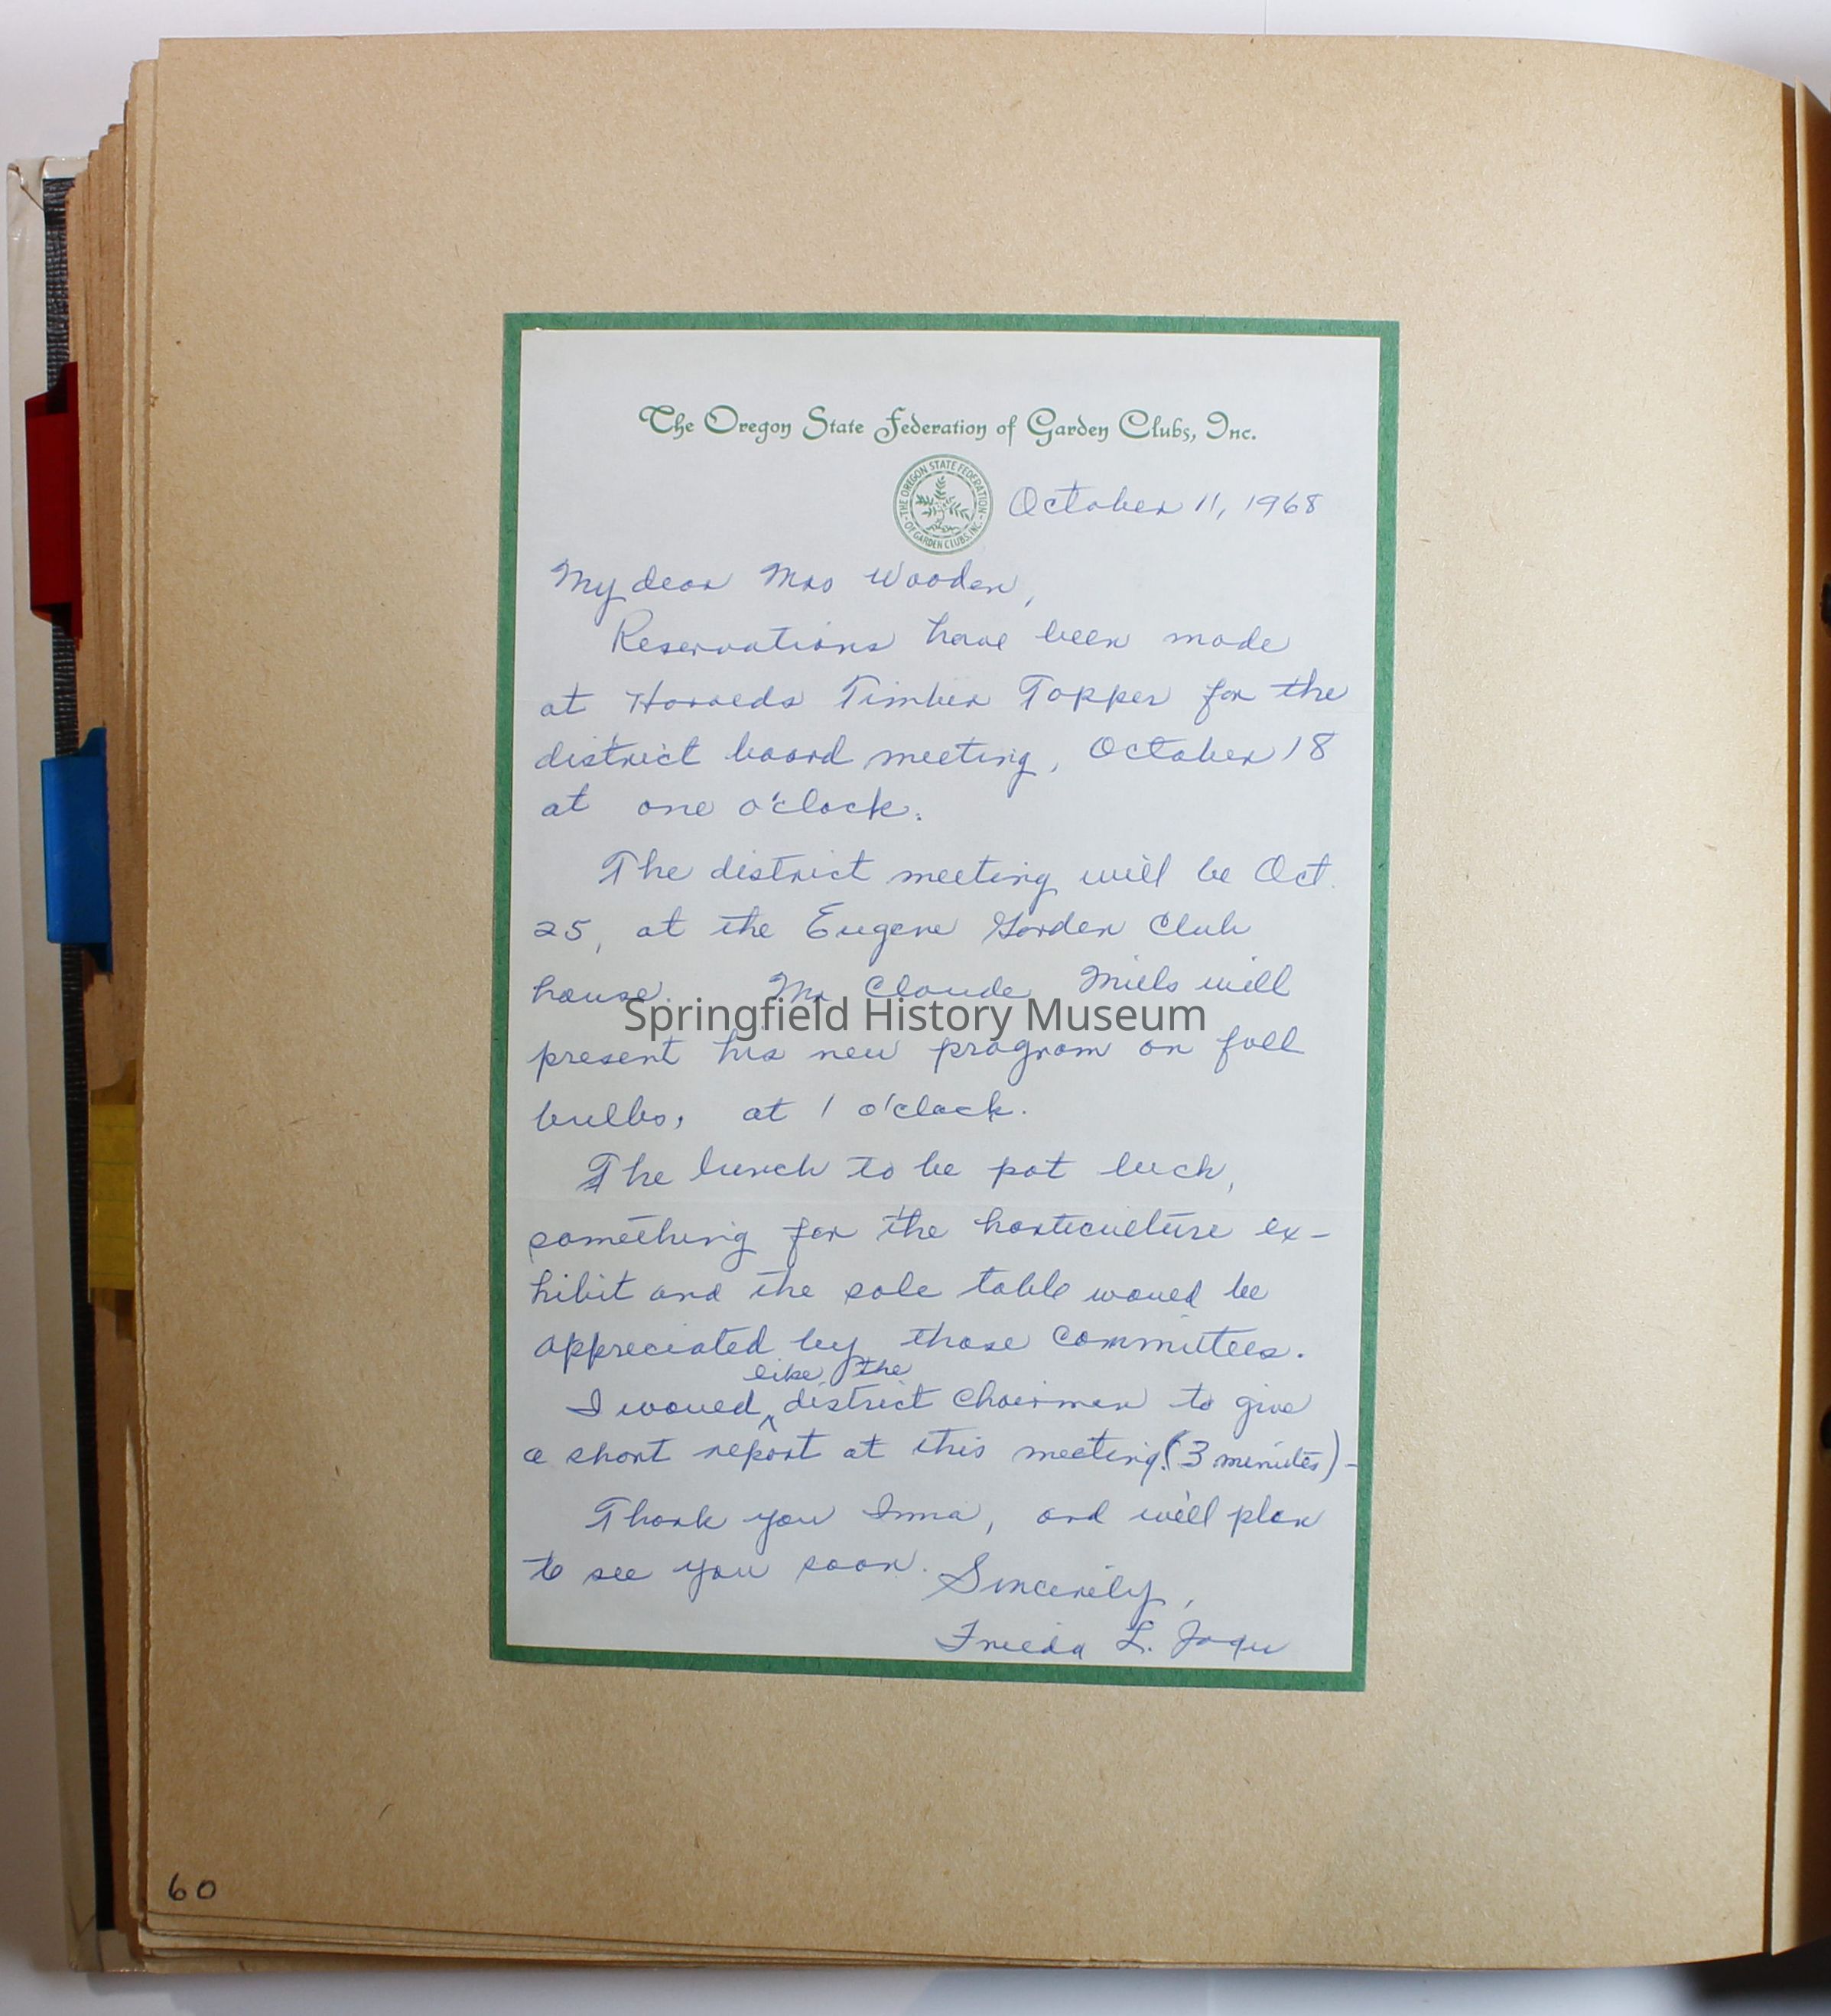 The Oregon State Federation of Garden Clubs, Inc.
THE OREGON STATE FEDERATION OF GARDEN CLUBS, INC.
October 11, 1968
My dear Mrs Wooden,
Reservations have been made
at Timber Topper for the
district board meeting, October 18
at one o'clock.
The district meeting will be Oct.
25, at the Eugene Garden Club
house. Mr Claude Mills will
Springfield History Museum
present his new program on fall
bulbs, at 1 o'clock.
The lunch to be pot luck,
something for the horticulture ex-
hibit and the sale table would be
appreciated by those committees.
like the
I would ^ district chairman to give
a short report at this meeting. (3 minutes) -
Thank you Inma, and will plan
to see you soon. Sincerely,
Frieda L. Jaqu
60